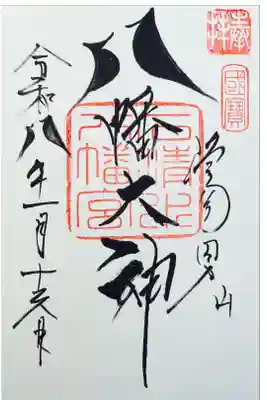 奉拝
國寶
男山
八幡大神
石清水
八幡宮
令和八年一月十六日